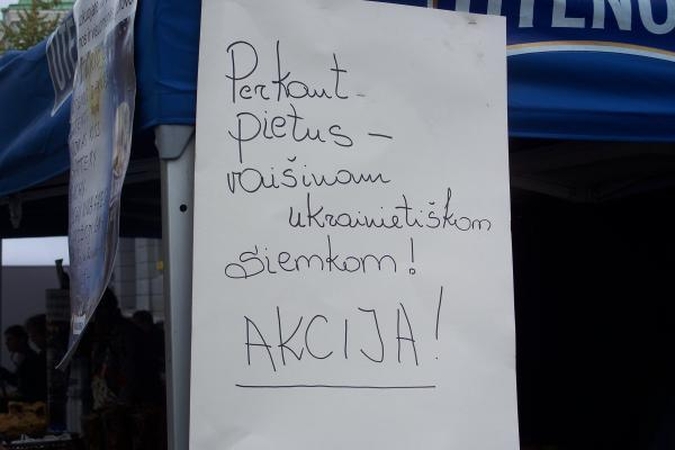 UTENO
Perkant
pietus –
vaišinam
ukrainietiškom
giemkom!
AKCIJA!